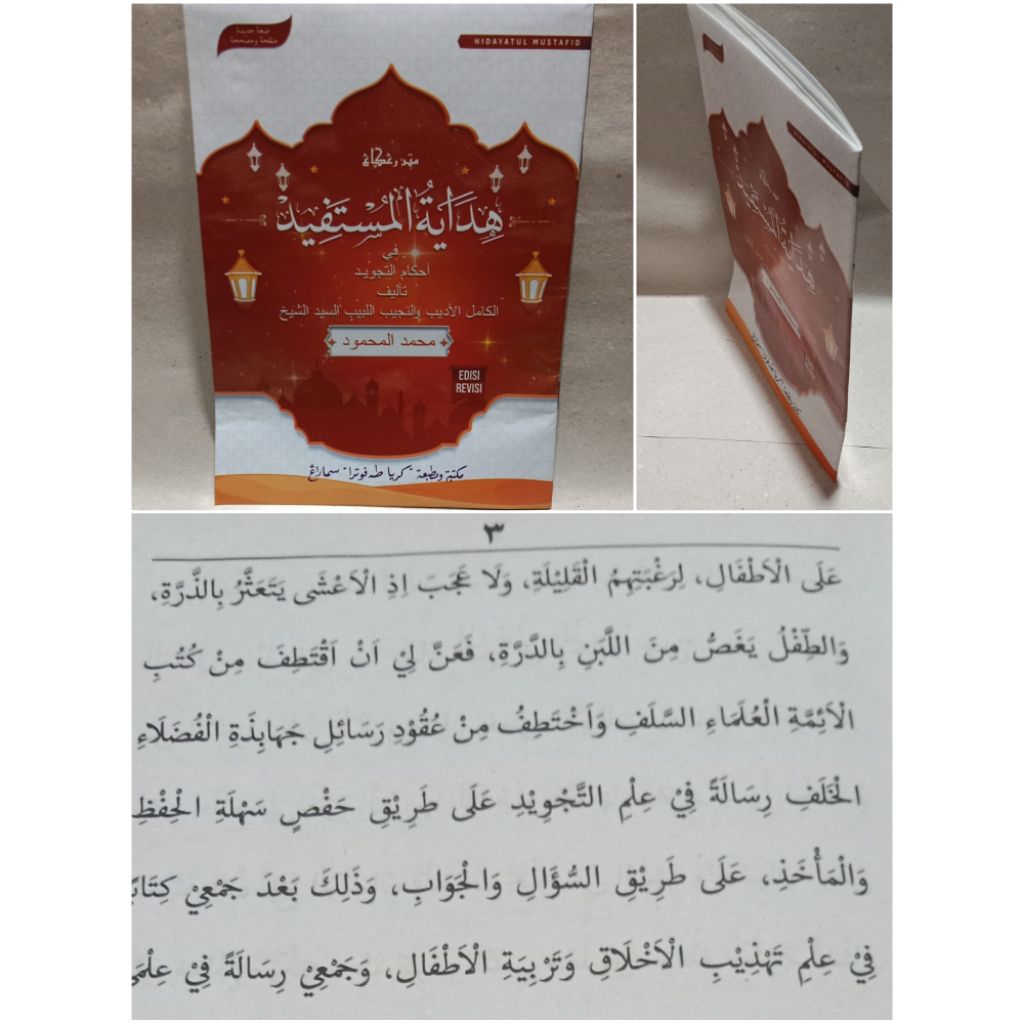 طبعة جديدة
منقحة ومصححة
HIDAYATUL MUSTAFID
متن
هِدَايَةُ الْمُسْتَفِيْدِ
في
أحكام التجويد
تأليف
الكامل الأديب والنجيب اللبيب السيد الشيخ
محمد المحمود
EDISI
REVISI
مكتبة ومطبعة "كريا طه فوترا" سماراڠ
HIDAYATUL MUSTAFID
٣
عَلَى الْاَطْفَالِ، لِرَغْبَتِهِمُ الْقَلِيْلَةِ، وَلَا عَجَبَ اِذِ الْاَعْشَى يَتَعَثَّرُ بِالذَّرَّةِ،
وَالطِّفْلُ يَغَصُّ مِنَ اللَّبَنِ بِالدَّرَّةِ، فَعَنَّ لِيْ اَنْ اَقْتَطِفَ مِنْ كُتُبِ
الْاَئِمَّةِ الْعُلَمَاءِ السَّلَفِ وَاَخْتَطِفُ مِنْ عُقُوْدِ رَسَائِلِ جَهَابِذَةِ الْفُضَلَاءِ
الْخَلَفِ رِسَالَةً فِيْ عِلْمِ التَّجْوِيْدِ عَلَى طَرِيْقِ حَفْصٍ سَهْلَةِ الْحِفْظِ
وَالْمَأْخَذِ، عَلَى طَرِيْقِ السُّؤَالِ وَالْجَوَابِ، وَذَلِكَ بَعْدَ جَمْعِيْ
فِيْ عِلْمِ تَهْذِيْبِ الْاَخْلَاقِ وَتَرْبِيَةِ الْاَطْفَالِ، وَجَمْعِيْ رِسَالَةً فِيْ